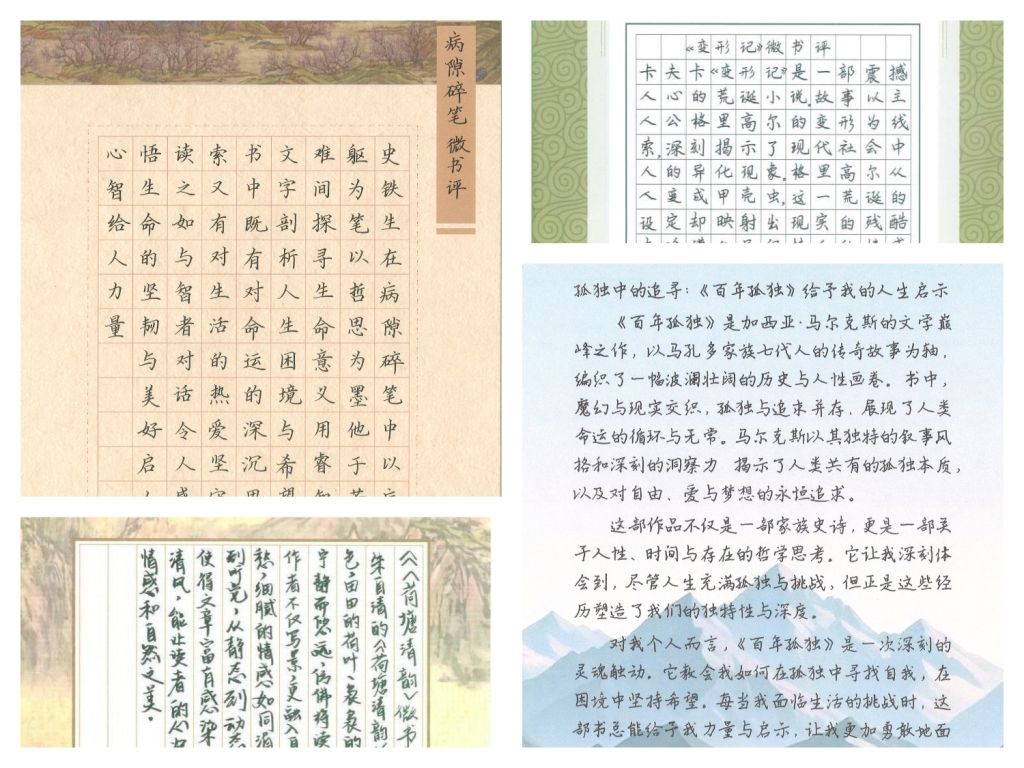 病隙碎笔 微书评
史铁生在病隙碎笔中以
躯为笔以哲思为墨他于
难间探寻生命意义用睿
文字剖析人生困境与希
书中既有对命运的深沉
索又有对生活的热爱坚
读之如与智者对话令人
悟生命的坚韧与美好启
心智给人力量
《变形记》微书评
卡夫卡《变形记》是一部震撼
人心的荒诞小说。故事以主
人公格里高尔的变形为线
索,深刻揭示了现代社会中
人的异化现象。格里高尔从
人变成甲壳虫,这一荒诞的
设定却映射出现实的残酷
《〈荷塘清韵〉微书
朱自清的《荷塘清韵
色,田田的荷叶,袅袅的
宁静而悠远,仿佛将读
作者不仅写景,更融入自
愁,细腻的情感如同涓
到听觉,从静态到动态
使得文章富有感染
清风,能让读者的心中
情感和自然之美。
孤独中的追寻:《百年孤独》给予我的人生启示
《百年孤独》是加西亚·马尔克斯的文学巅
峰之作,以马孔多家族七代人的传奇故事为轴,
编织了一幅波澜壮阔的历史与人性画卷。书中,
魔幻与现实交织,孤独与追求并存,展现了人类
命运的循环与无常。马尔克斯以其独特的叙事风
格和深刻的洞察力 揭示了人类共有的孤独本质,
以及对自由、爱与梦想的永恒追求。
这部作品不仅是一部家族史诗,更是一部关
于人性、时间与存在的哲学思考。它让我深刻体
会到,尽管人生充满孤独与挑战,但正是这些经
历塑造了我们的独特性与深度。
对我个人而言,《百年孤独》是一次深刻的
灵魂触动。它教会我如何在孤独中寻找自我,在
困境中坚持希望。每当我面临生活的挑战时,这
部书总能给予我力量与启示,让我更加勇敢地面